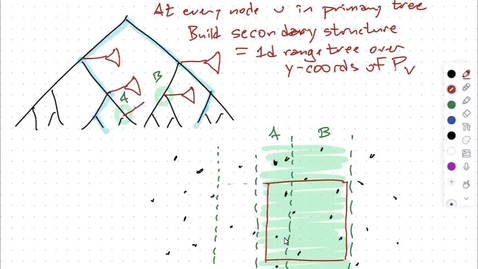 At every node v in primary tree
Build secondary structure
= 1d range tree over
y-coords of Pv
A
B
A
B